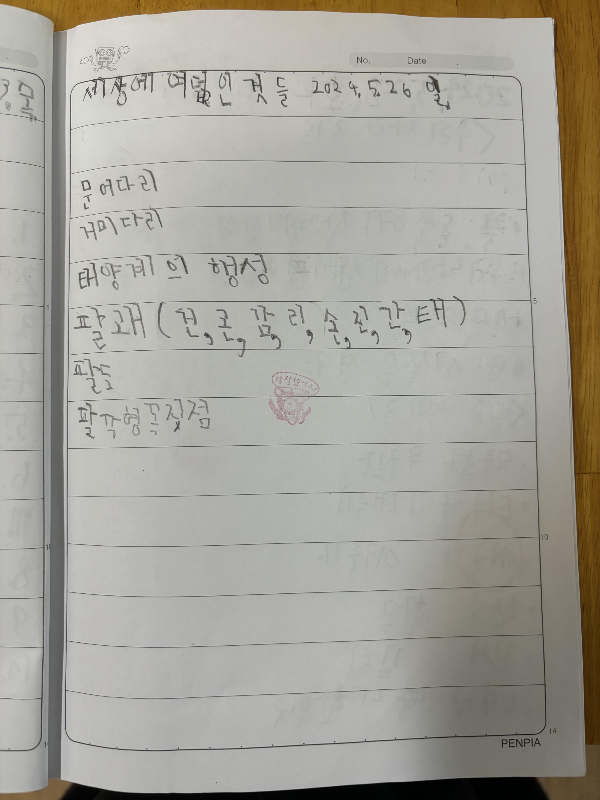 3. 목.
No. Date
세상에 여덟인 것들 2024. 5. 26 일.
문어다리
거미다리
태양계의 행성
5
팔괘(건, 곤, 감, 리, 손, 진, 간, 태)
팔도
참잘했어요
팔각형꼭짓점
10
10
14
PENPIA